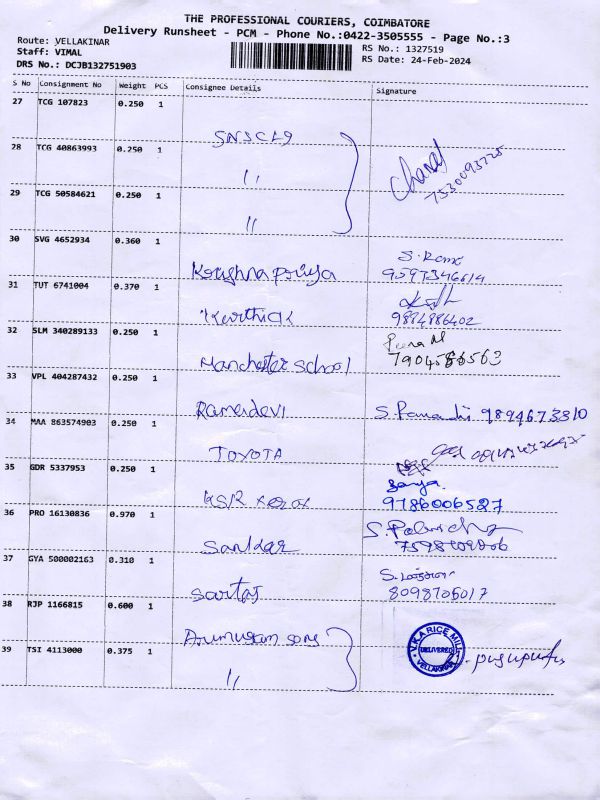 THE PROFESSIONAL COURIERS, COIMBATORE
Delivery Runsheet - PCM - Phone No.:0422-3505555 - Page No.:3
Route: VELLAKINAR
RS No.: 1327519
Staff: VIMAL
RS Date: 24-Feb-2024
DRS No.: DCJB132751903
S No Consignment No Weight PCS Consignee Details Signature
27 TCG 107823 0.250 1
28 TCG 40863993 0.250 1 "
29 TCG 50584621 0.250 1 "
7530093725
30 SVG 4652934 0.360 1 Krishna priya S. Rama
9597346614
31 TUT 6741004 0.370 1 Karthick
9884886402
32 SLM 340289133 0.250 1 Manchester School
7904586563
33 VPL 404287432 0.250 1 Ramadevi 9894673310
34 MAA 863574903 0.250 1 TOYOTA
35 GDR 5337953 0.250 1 KSR xerox
9786006527
36 PRO 16130836 0.970 1 Sankar
37 GYA 500002163 0.310 1 Sartaj
8098705017
38 RJP 1166815 0.600 1 Arumugam sons
39 TSI 4113000 0.375 1 "
V.K.A RICE MILL
DELIVERED
VELLAKINAR